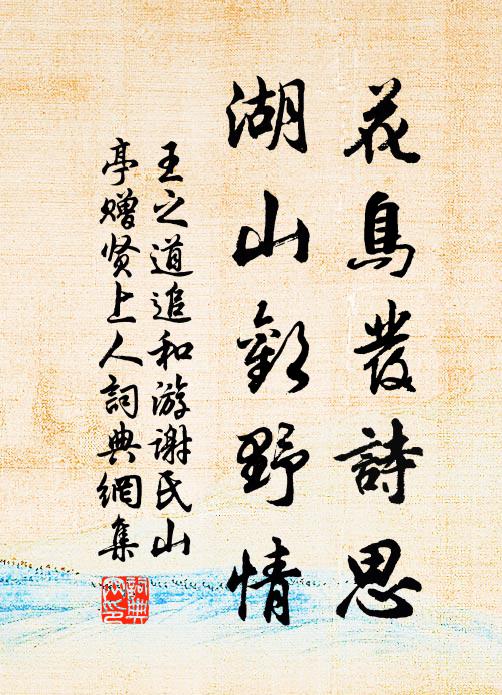 花鳥發詩思
湖山歡野情
王之道追和游谢氏山
亭赠贤上人詞典網集